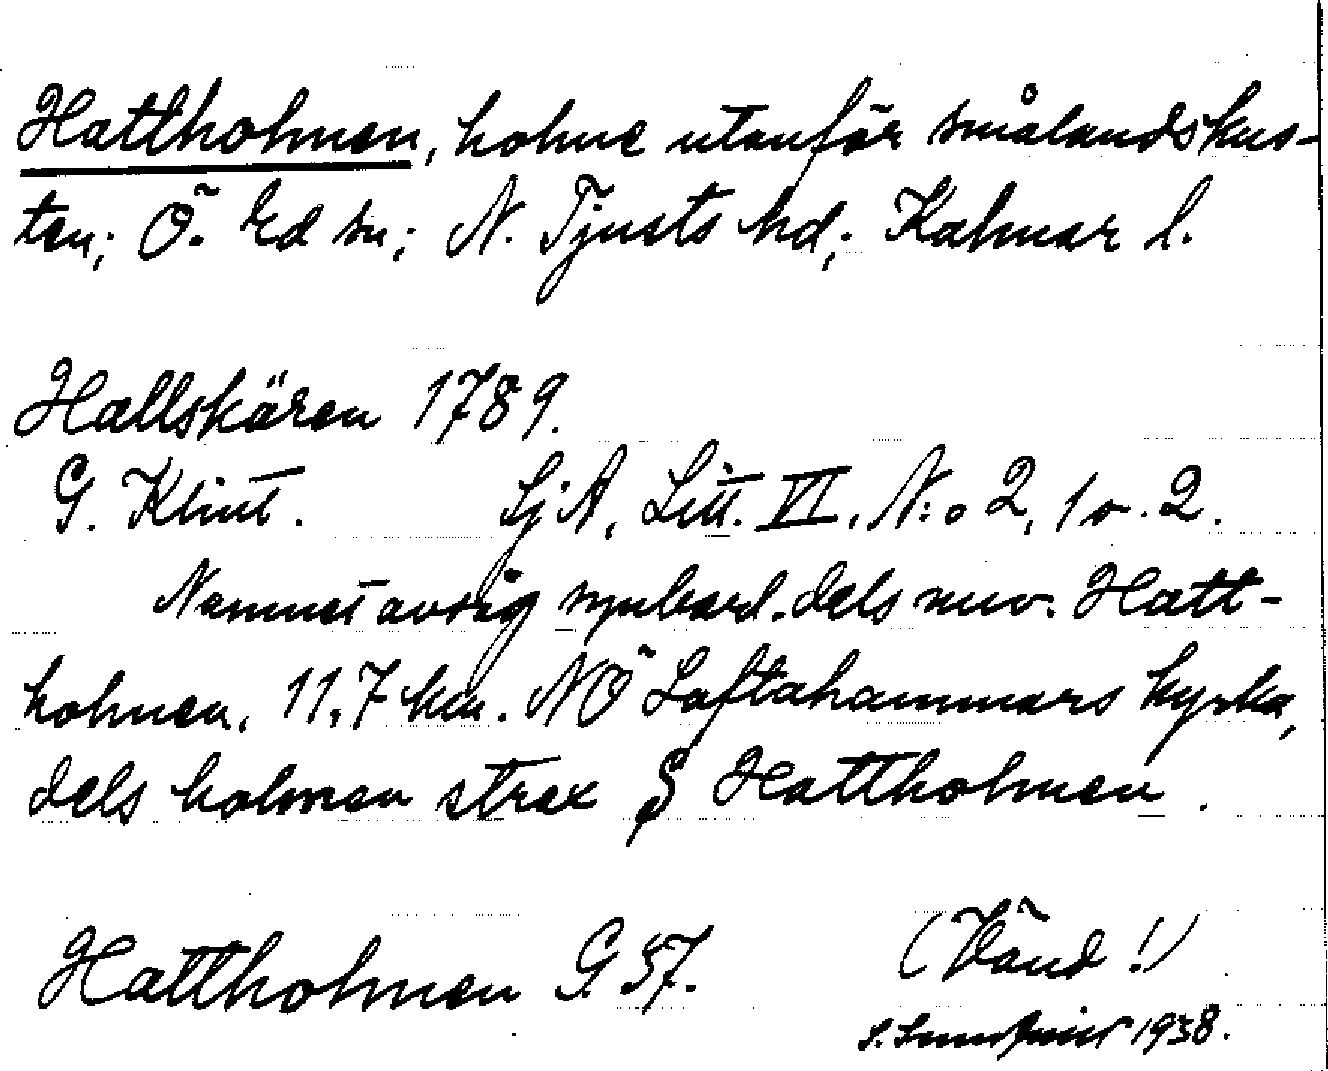 Hattholmen, holme utanför smålandskus-
ten; Ö. Ed sn; N. Tjusts hd; Kalmar l.
Hallskären 1789.
G. Klint. SjA, Litt. VI, N:o 2, 1 o. 2.
Namnet avsåg synbarl. dels nuv. Hatt-
holmen, 11.7 km. NÖ Loftahammars kyrka,
dels holmen strax S Hattholmen.
Hattholmen G 57. (Vänd!)
S. 1938.